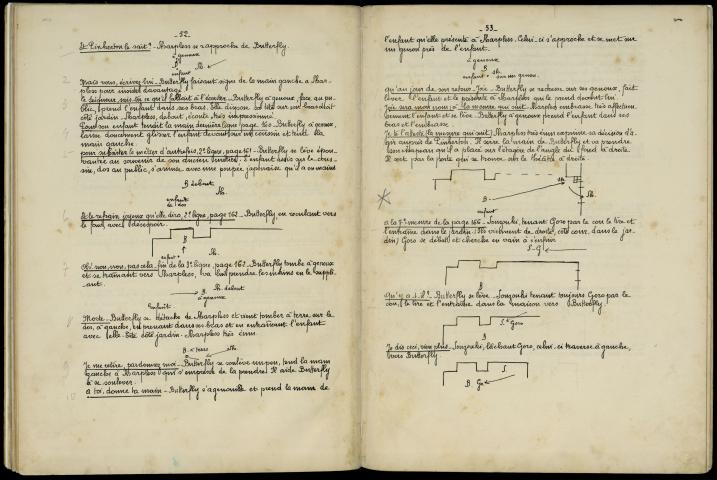 _52_
Et Pinkerton le sait? - Sharpless se rapproche de Butterfly.
à genoux
B
enfant
Sh.
2
Mais vous, écrivez lui - Butterfly faisant signe de la main gauche à Shar-
pless par insiste davantage
3
le Seigneur, mis en ce qu'il fallait à l'écarter - Butterfly à genoux, face au pu-
blic, prend l'enfant dans ses bras. Elle dispose sa tête sur son bras droit
côté jardin. Sharpless, debout, écoute très impressionné.
Dans son enfant tendit la main dernière ligne page 160 Butterfly à genoux,
laisse doucement glisser l'enfant devant sur un coussin et tend la
main gauche.
pour reprendre le métier d'autrefois, 2e ligne, page 161 - Butterfly se lève épou-
vantée au souvenir de son ancien métier. L'enfant assis sur le cous-
sin, dos au public, s'amuse avec une poupée japonaise qu'il a en mains
B debout
Sh.
enfant
6
Et le refrain joyeux qu'elle dira, 2e ligne, page 162 - Butterfly en reculant vers
le fond, avec désespoir.
B
Sh.
enfant
7
Ah! non, non, pas cela - fin de la 3e ligne, page 162 Butterfly tombe à genoux
et se traînant vers Sharpless, va lui prendre les mains en le suppli-
ant.
Sh. debout
B.
à genoux
Enfant
8
Morte - Butterfly se détache de Sharpless et vient tomber à terre, sur le
dos, à gauche, en prenant dans ses bras et en entraînant l'enfant
avec elle. Côté jardin. Sharpless très ému.
B. à terre
9
Je me retire, pardonnez moi - Butterfly se soulève un peu, tend la main
gauche à Sharpless qui s'empresse de la prendre. Il aide Butterfly
à se soulever.
10
à toi, donne ta main - Butterfly s'agenouille et prend la main de
_53_
l'enfant qu'elle présente à Sharpless. Celui-ci s'approche et se met sur
un genou près de l'enfant.
à genoux
B
enfant
Sh.
sur un genou.
qu'au jour de son retour - Joie - Butterfly se redresse sur ses genoux, fait
lever l'enfant et le présente à Sharpless qui le prend devant lui.
Joie sera mon nom; à la mesure qui suit Sharpless embrasse très affectueu-
sement l'enfant et se lève. Butterfly à genoux prend l'enfant dans ses
bras et l'embrasse.
Je te l'atteste (la mesure qui suit) Sharpless très ému exprime sa décision d'a-
gir auprès de Pinkerton. Il serre la main de Butterfly et va prendre
son chapeau qu'il a placé sur l'étagère de l'angle du fond à droite.
Il sort par la porte qui se trouve sur le théâtre à droite.
B
enfant
Sh.
Sh.
à la 7e mesure de la page 166 - Souzouki, tenant Goro par le cou le tire et
l'entraîne dans le jardin (Ils viennent de droite, côté cour, dans le jar-
din) Goro se débat et cherche en vain à s'enfuir.
S. G
B
Qu'y a-t-il? Butterfly se lève. Souzouki tenant toujours Goro par le
cou, le tire et l'entraîne dans la maison vers Butterfly.
S. Goro
B
Je dis ceci, rien plus - Souzouki, lâchant Goro, celui-ci traverse à gauche,
vers Butterfly.
S.
B. Go